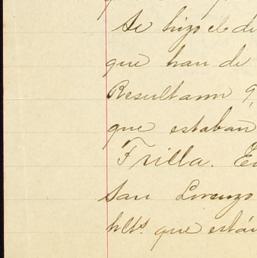 Se hizo el di
que han de
Resultaron 9,
que estaban
Trilla. En
San Lorenzo
hlts. que están